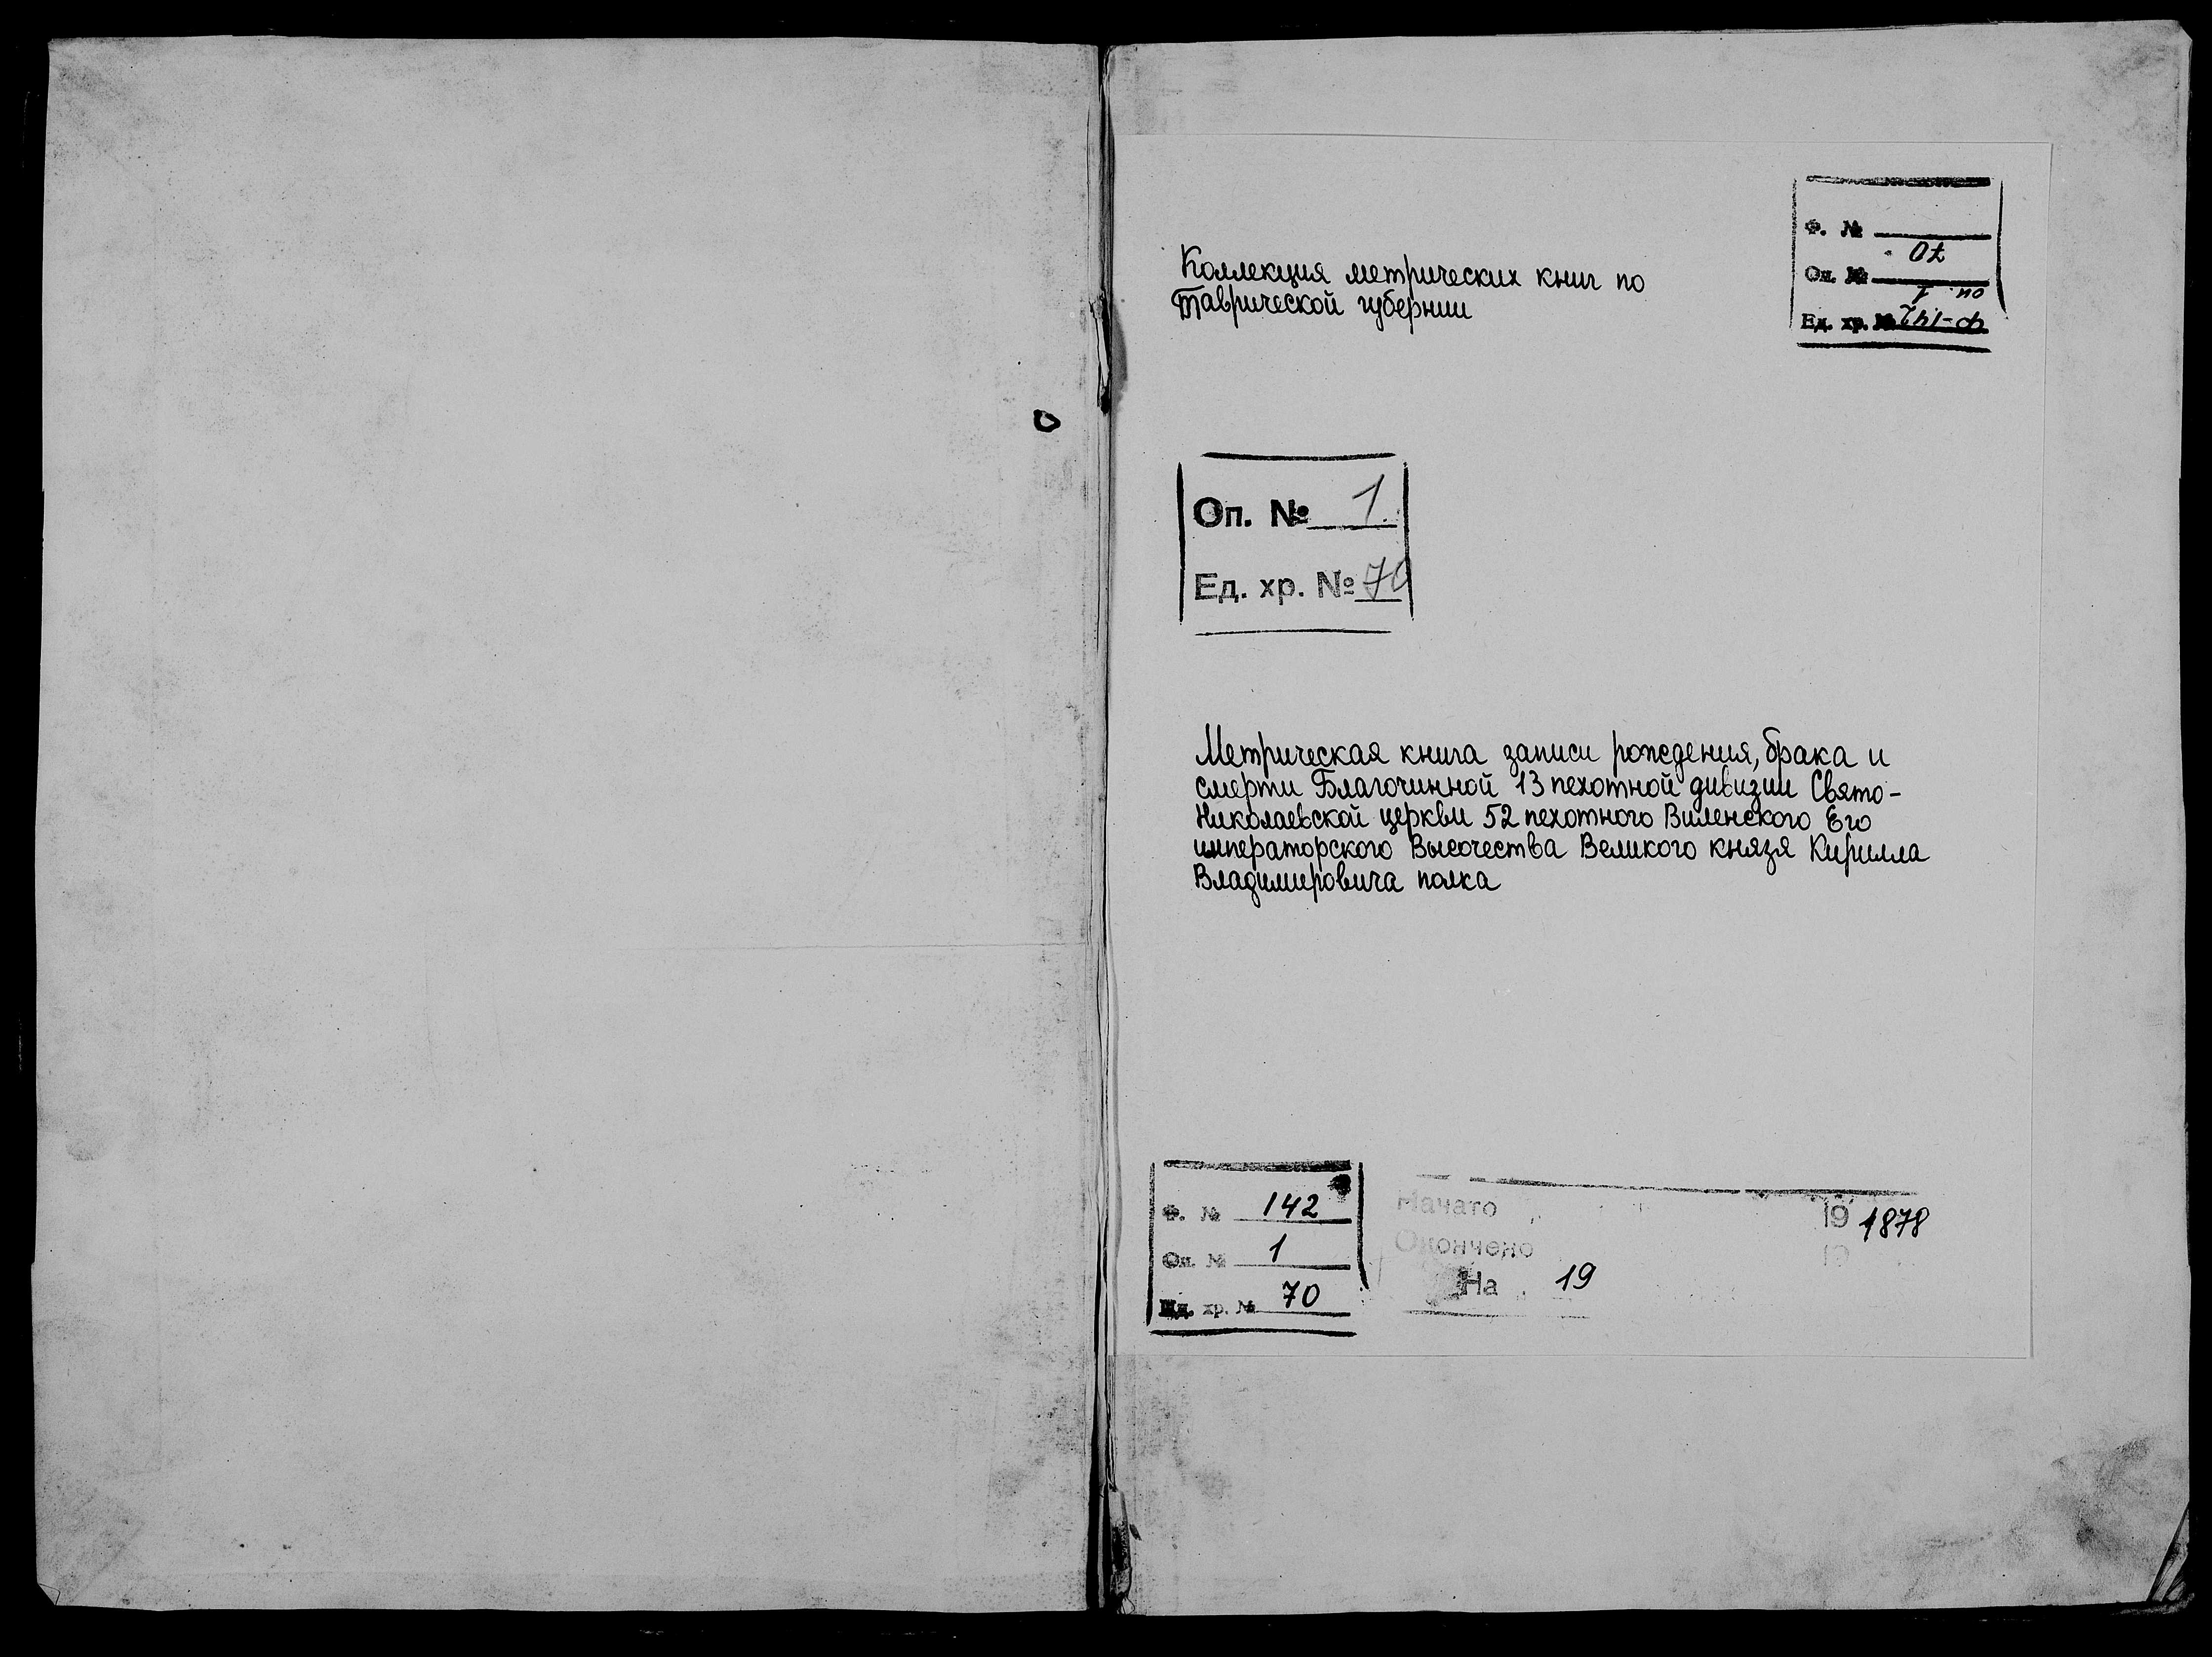 Коллекция метрических книг по
Таврической губернии
Ф. №
70
Оп. №
оп. 1
Ед. хр. № Ф-142
Оп. № 1
Ед. хр. № 70
Метрическая книга записи рождения, брака и
смерти Благочинной 13 пехотной дивизии Свято-
Николаевской церкви 52 пехотного Виленского Его
императорского Высочества Великого князя Кирилла
Владимировича полка
Ф. № 142
Оп. № 1
Ед. хр. № 70
Начато 19 1878
Окончено 19
На 19